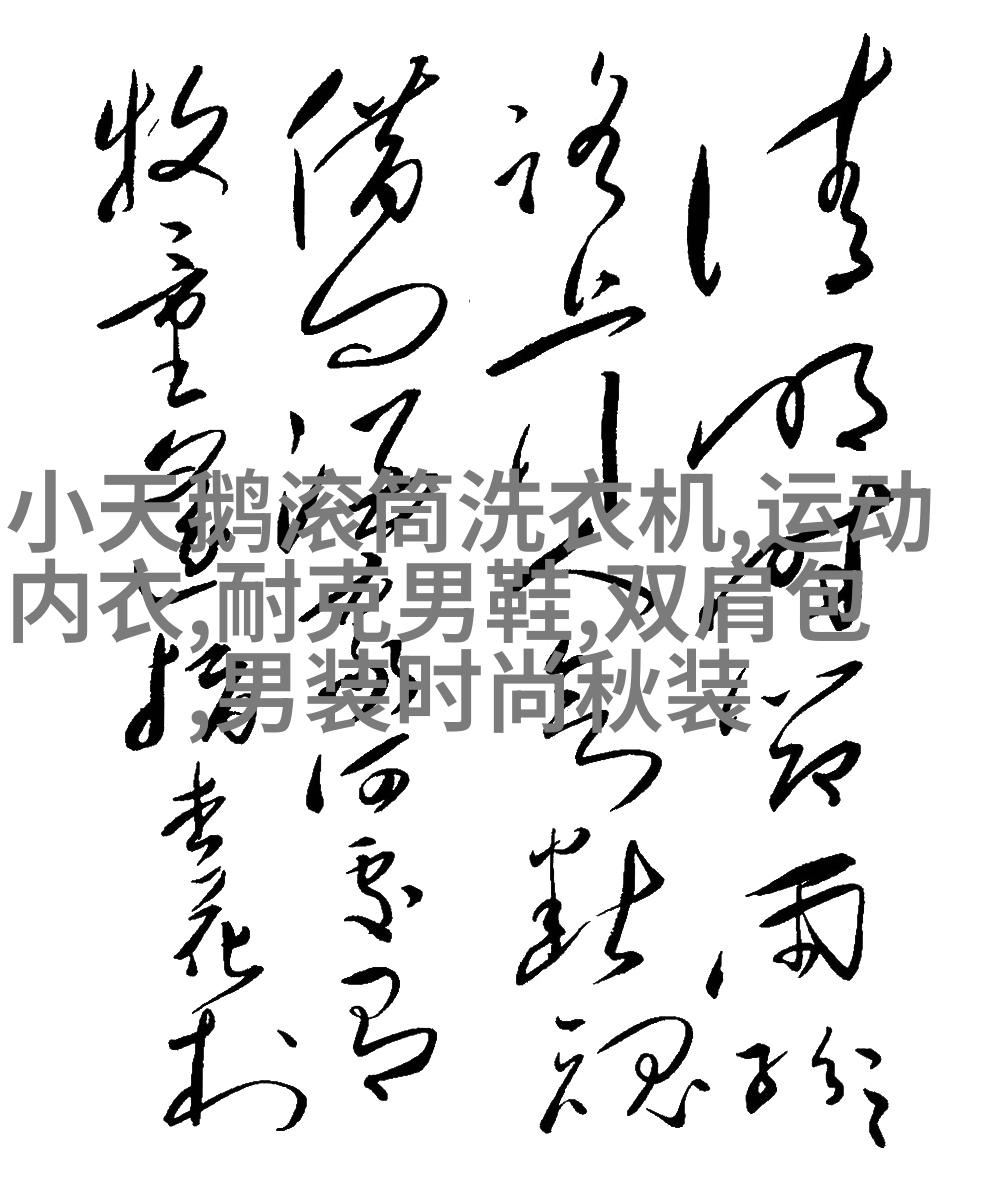 清明時節雨紛紛
路上行人欲斷魂
借問酒家何處有
牧童遙指杏花村
小天鹅滚筒洗衣机,运动
内衣,耐克男鞋,双肩包
,男装时尚秋装